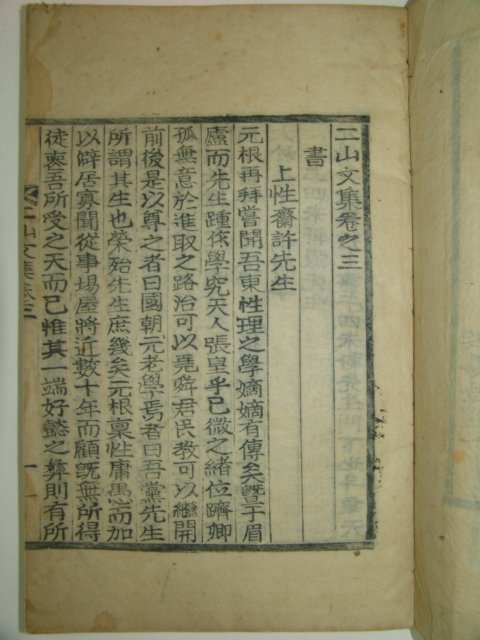 二山文集卷之三
書
上性齋許先生
元根再拜嘗聞吾東性理之學嫡嫡有傳矣曁于眉
廬而先生踵依學究天人張皇乎已微之緖位躋卿
孤無意於進取之路治可以堯舜君民教可以繼開
前後是以尊之者曰國朝元老學焉者曰吾黨先生
所謂其生也榮殆先生庶幾矣元根稟性庸愚而加
以僻居寡聞從事場屋將近數十年而顧旣無所得
徒喪吾所受之天而已惟其一端好懿之彝則有所
二山文集卷三
一